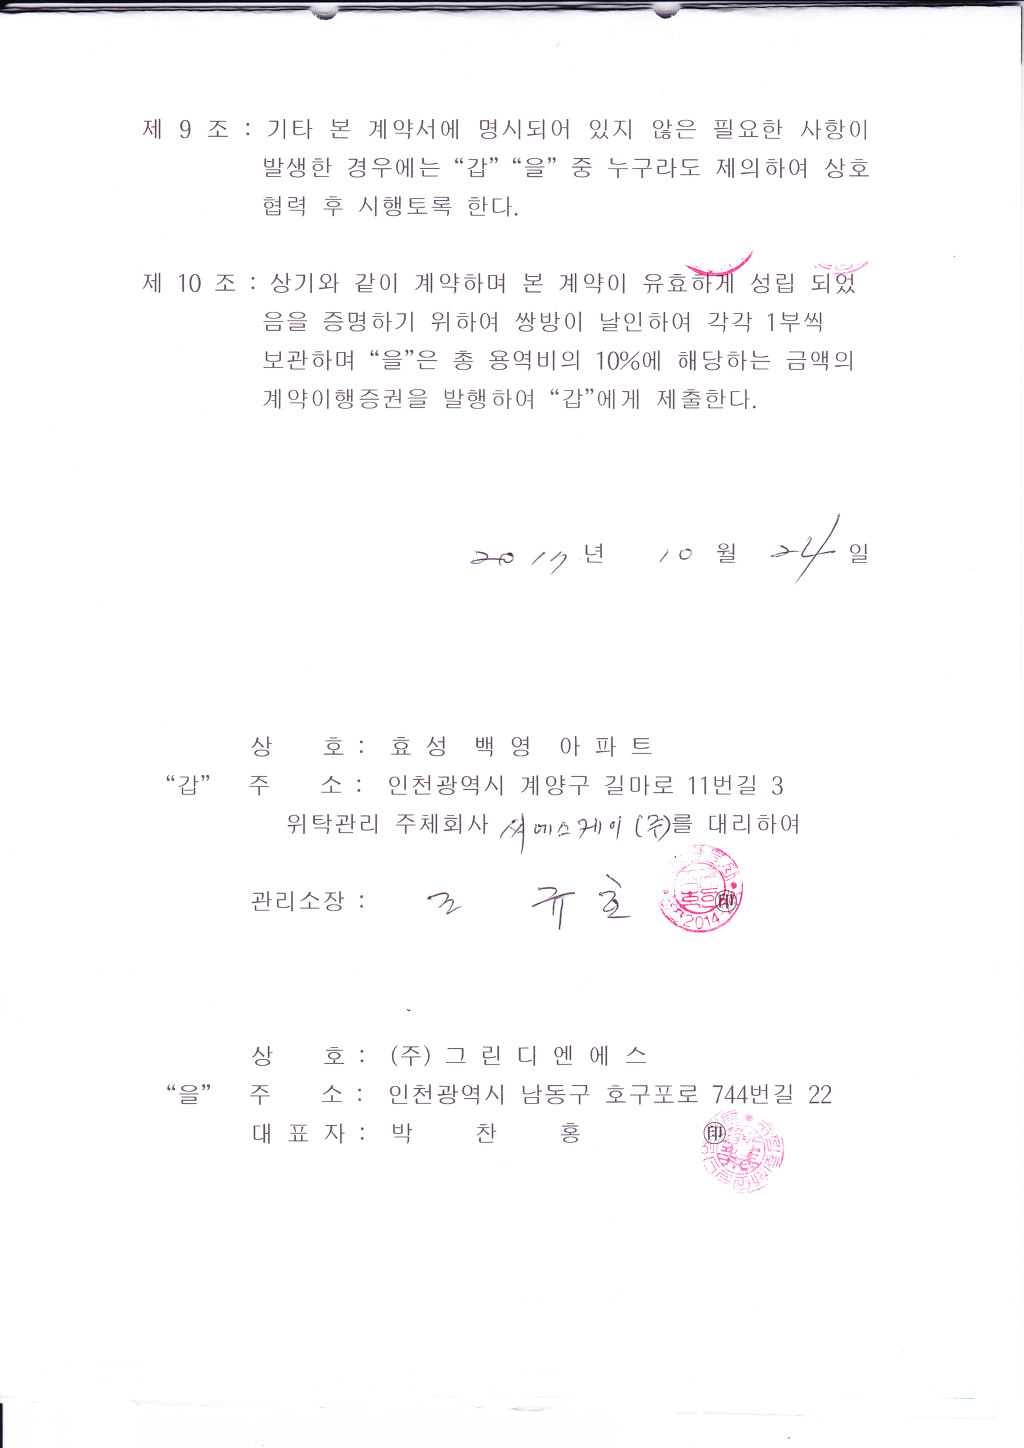 제 9 조 : 기타 본 계약서에 명시되어 있지 않은 필요한 사항이
발생한 경우에는 “갑” “을” 중 누구라도 제의하여 상호
협력 후 시행토록 한다.
제 10 조 : 상기와 같이 계약하며 본 계약이 유효하게 성립 되었
음을 증명하기 위하여 쌍방이 날인하여 각각 1부씩
보관하며 “을”은 총 용역비의 10%에 해당하는 금액의
계약이행증권을 발행하여 “갑”에게 제출한다.
2017년 10월 24일
상 호 : 효 성 백 영 아 파 트
“갑” 주 소 : 인천광역시 계양구 길마로 11번길 3
위탁관리 주체회사 에스케이(주)를 대리하여
관리소장 : 조 규 호 印
2014
상 호 : (주) 그 린 디 엔 에 스
“을” 주 소 : 인천광역시 남동구 호구포로 744번길 22
대 표 자 : 박 찬 홍 印